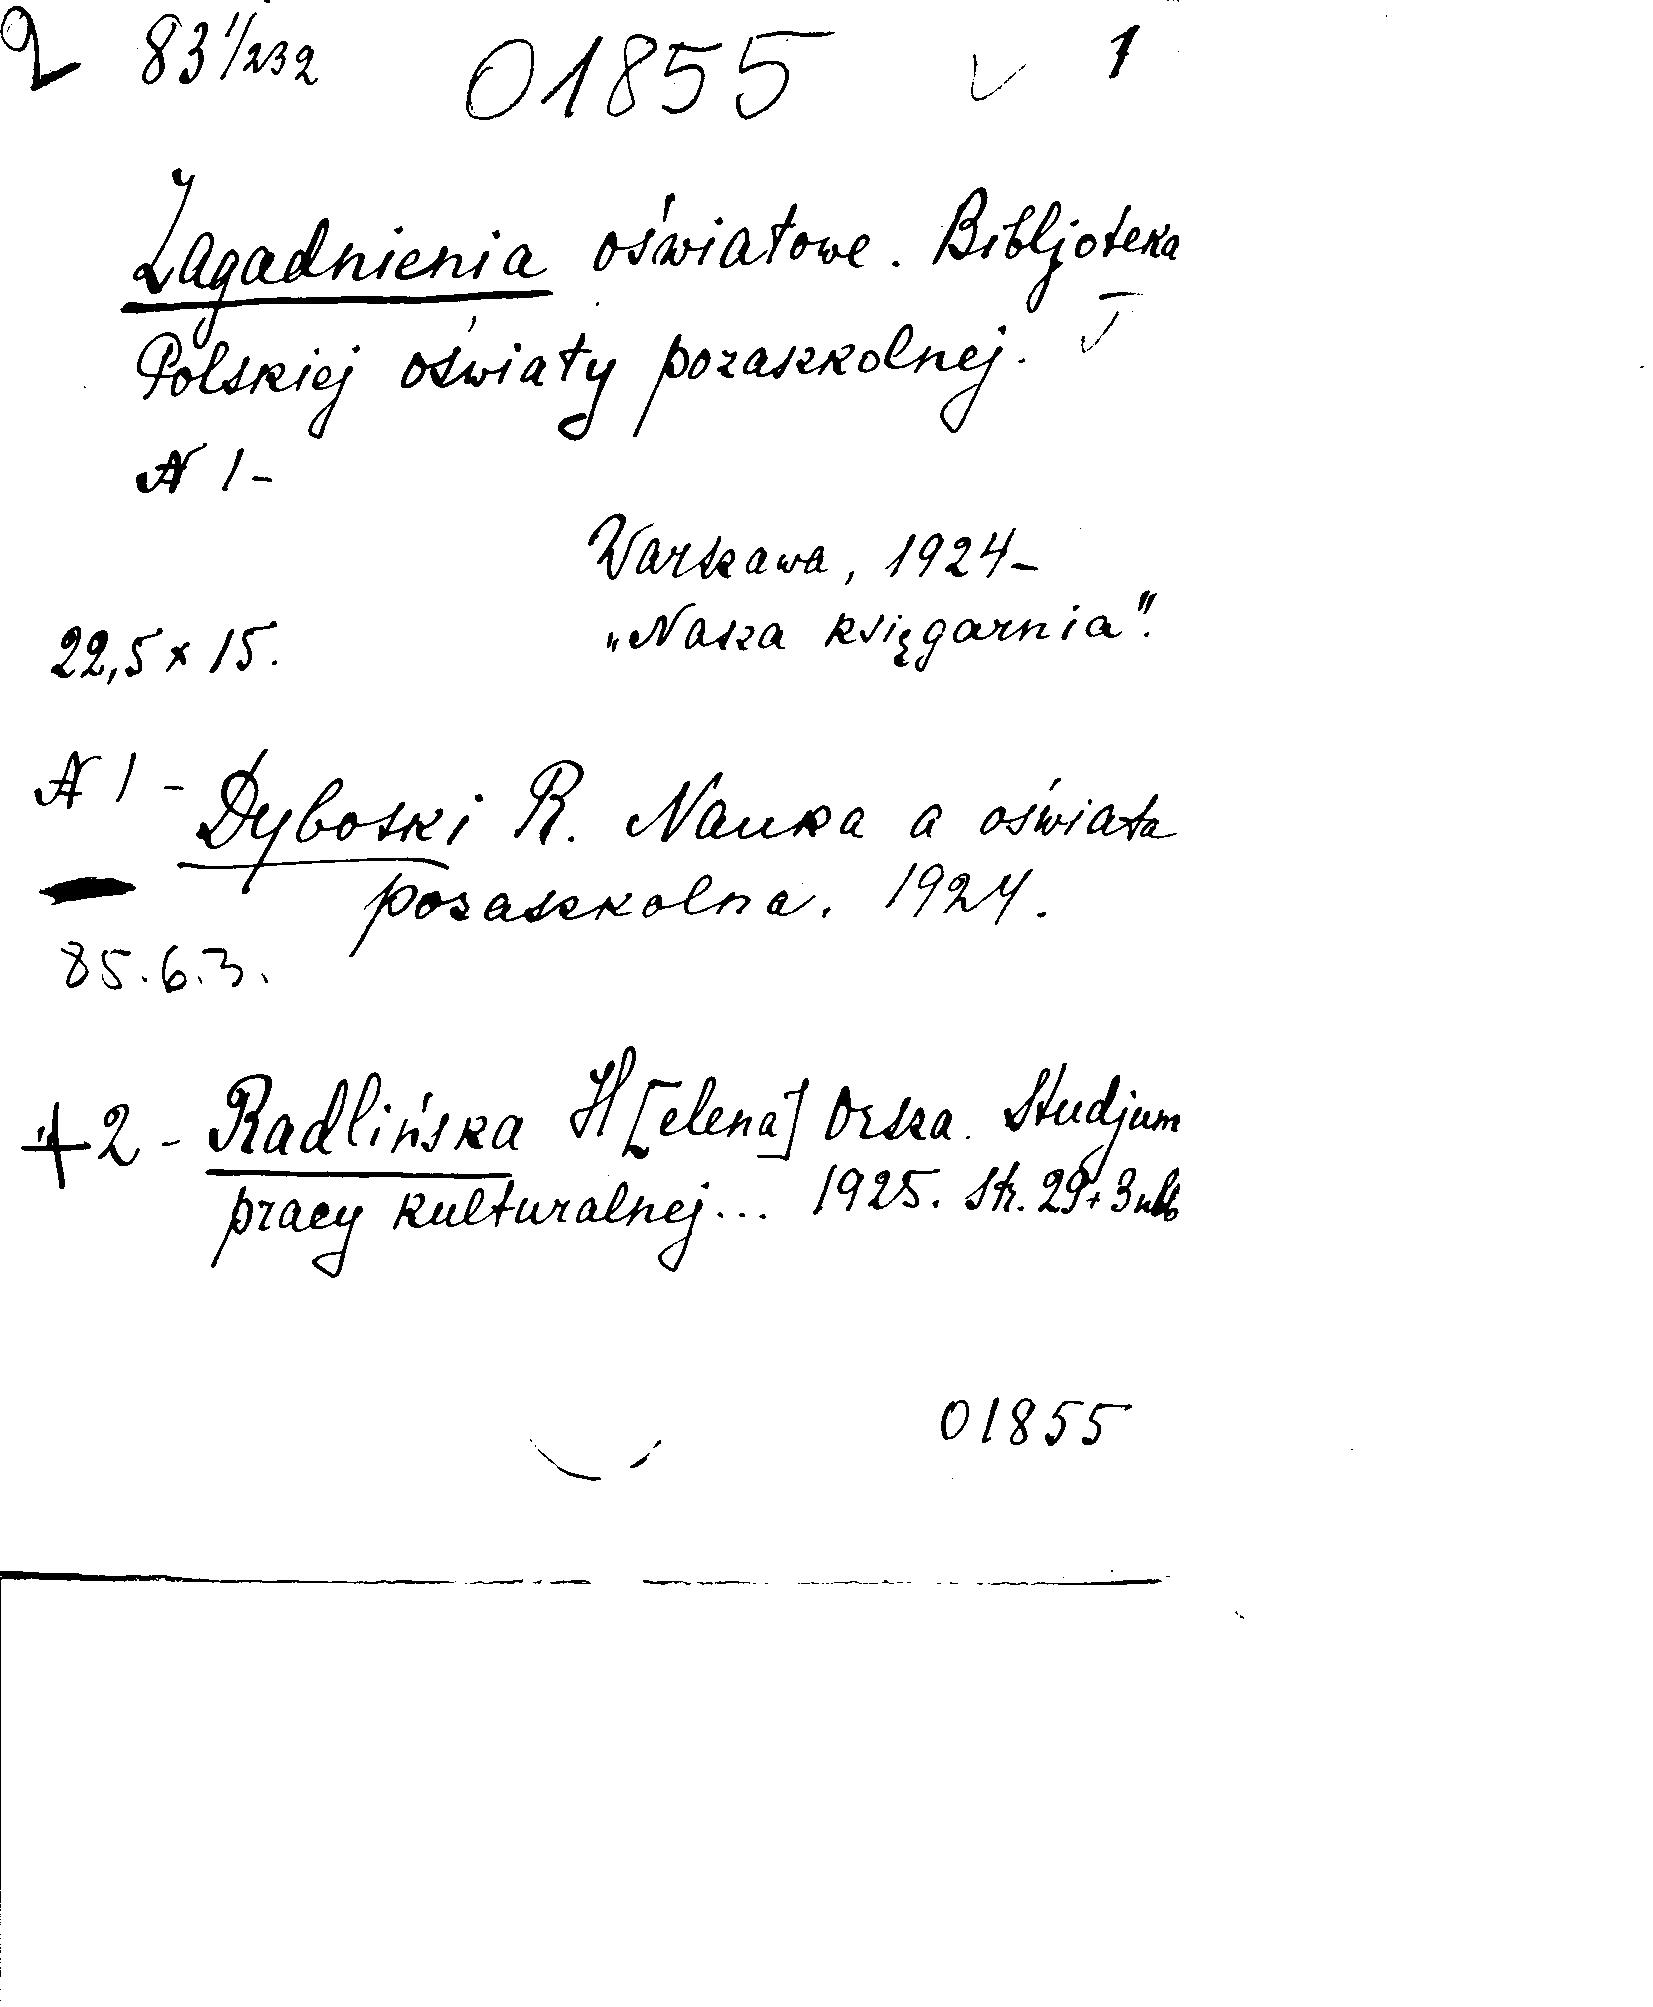 2 83 1/232 01855 1
Zagadnienia oświatowe. Bibljoteka
Polskiej oświaty pozaszkolnej.
N 1-
Warszawa, 1924-
„Nasza księgarnia".
22,5 x 15.
N 1 - Dyboski R. Nauka a oświata
pozaszkolna. 1924.
85.6.3.
+ 2 - Radlińska H[elena] Orsza. Studjum
pracy kulturalnej... 1925. Str. 29+3nlb
01855